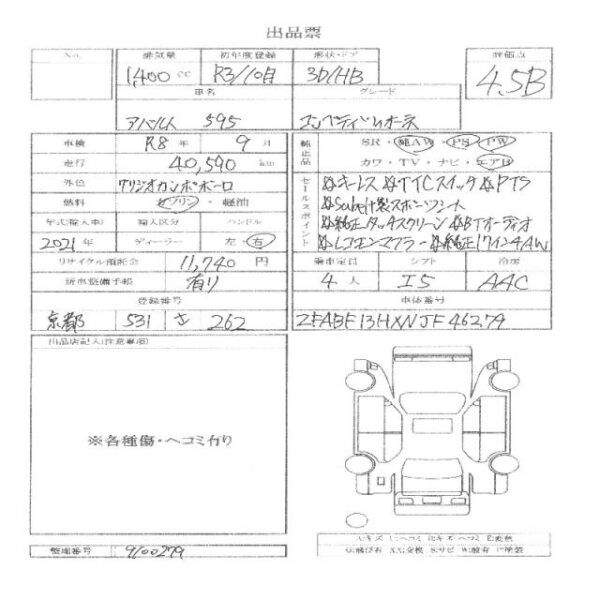 出品票
No.
排気量 初年度登録 形状・ドア
1400 cc R3/10月 3D/HB
評価点
4.5B
車名 グレード
アバルト 595 コンペティツィオーネ
車検 R8 年 9 月
走行 40,590 km
外色 グリジオカンポボーロ
燃料 ガソリン・軽油
年式(輸入車) 輸入区分 ハンドル
2021 年 ディーラー・ 左・右
リサイクル預託金 11,740 円
新車整備手帳 有り
登録番号
京都 531 さ 262
純正品
SR・純AW・PS・PW
カワ・TV・ナビ・エアB
セールスポイント
☆キーレス ☆TTCスイッチ ☆PTS
☆Sabelt製スポーツシート
☆純正タッチスクリーン ☆BTオーディオ
☆レコモンツァマフラー ☆純正17インチAW
乗車定員 シフト 冷房
4 人 I5 AAC
車体番号
ZFABF13HXNJF46279
出品店記入(注意事項)
※各種傷・ヘコミ有り
A:キズ U:ヘコミ B:キズ・ヘコミ E:変色
G:飛び石 X,XX:交換 S:サビ W:波有 P:塗装
整理番号 9100279